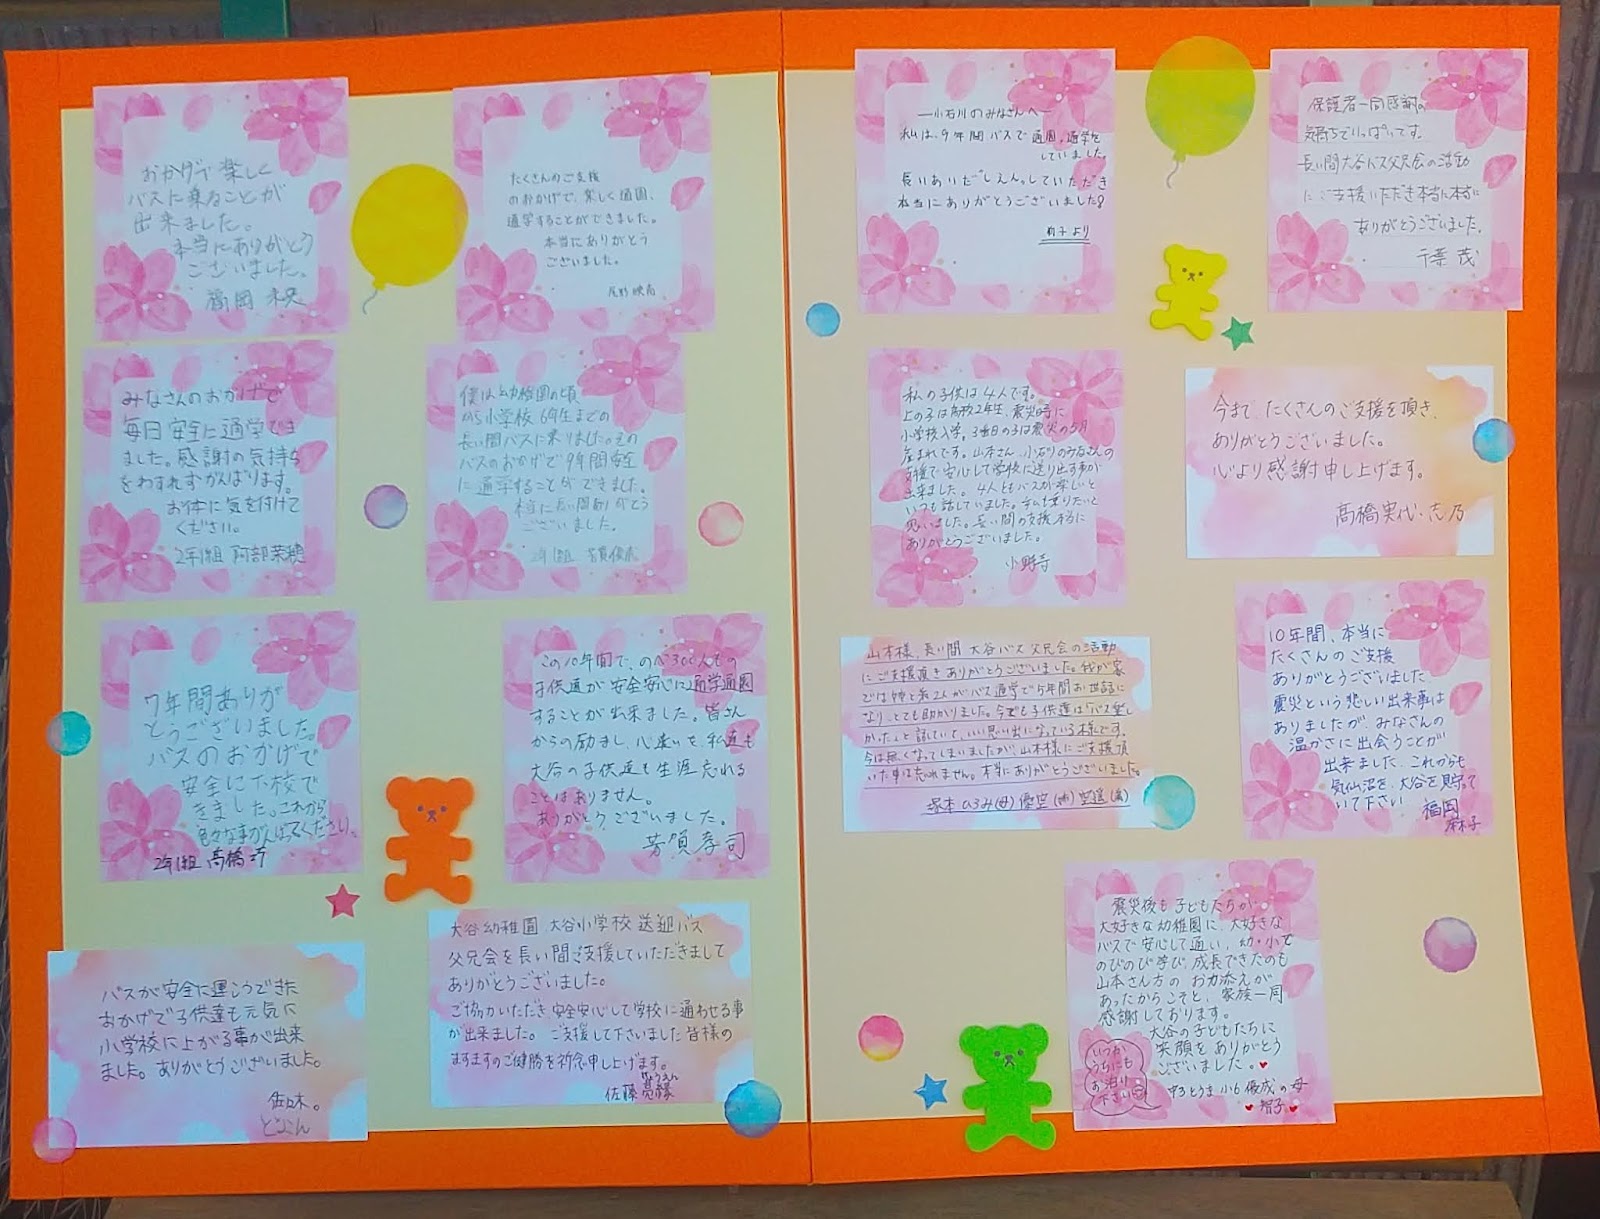 おかげで楽しく
バスに乗ることが
出来ました。
本当にありがとう
ございました。
福岡 未央
たくさんのご支援
のおかげで、楽しく通園、
通学することができました。
本当にありがとう
ございました。
尾形 映高
みなさんのおかげで
毎日安全に通学でき
ました。感謝の気持ち
をわすれずがんばります。
お体に気を付けて
ください。
2年1組 阿部菜穂
僕は幼稚園の頃
から小学校6年生までの
長い間バスに乗りました。その
バスのおかげで9年間安全
に通学することができました。
本当に長い間ありがとう
ございました。
2年1組 芳賀俊
7年間ありが
とうございました。
バスのおかげで
安全に下校で
きました。これから
色々なまがんばってください。
2年1組 高橋
この10年間で、のべ300人もの
子供達が安全安心に通学通園
することが出来ました。皆さん
からの励まし、心遣いを、私達も
大谷の子供達も生涯忘れる
ことはありません。
ありがとうございました。
芳賀孝司
バスが安全に運こうできた
おかげで子供達も元気に
小学校に上がる事が出来
ました。ありがとうございました。
佐々木。
大谷幼稚園、大谷小学校送迎バス
父兄会を長い間ご支援していただきまして
ありがとうございました。
ご協力いただき、安全安心して学校に通わせる事
が出来ました。ご支援して下さいました皆様の
ますますのご健勝を祈念申し上げます。
佐藤亮
―小石川のみなさんへ―
私は、9年間バスで通園、通学を
していました。
長いあいだしえん。していただき
本当にありがとうございました!
より
保護者一同感謝の
気持ちでいっぱいです。
長い間大谷バス父兄会の活動
にご支援いただき本当に本当に
ありがとうございました。
千葉 茂
私の子供は4人です。
上の子は高校2年生、震災時に
小学校入学。3番目の子は震災の5月
産まれです。山本さん、小石川のみなさんの
支援で安心して学校に送り出す事が
出来ました。4人ともバスが楽しいと
いつも話していました。私も乗りたいと
思いました。長い間の支援本当に
ありがとうございました。
小野寺
今まで、たくさんのご支援を頂き、
ありがとうございました。
心より感謝申し上げます。
高橋実代・志乃
山本様、長い間 大谷バス父兄会の活動
にご支援頂きありがとうございました。我が家
では姉と弟2人がバス通学で5年間お世話に
なり、とても助かりました。今でも子供達は「バス楽し
かった」と話していて、いい思い出になっている様です。
今は無くなってしまいましたが、山本様にご支援頂
いた事は忘れません。本当にありがとうございました。
塚本ひろみ(母) 優空(姉) 空遥(弟)
10年間、本当に
たくさんのご支援
ありがとうございました
震災という悲しい出来事は
ありましたが、みなさんの
温かさに出会うことが
出来ました。これからも
気仙沼を、大谷を見守って
いて下さい
福岡
麻子
震災後も子どもたちが
大好きな幼稚園に、大好きな
バスで安心して通い、幼・小で
のびのび学び、成長できたのも
山本さん方のお力添えが
あったからこそと、家族一同
感謝しております。
大谷の子どもたちに
笑顔をありがとう
ございました。♥
いつか、
うちにも
お泊り
下さい
中3とうま 小6優成の母
♥智子♥